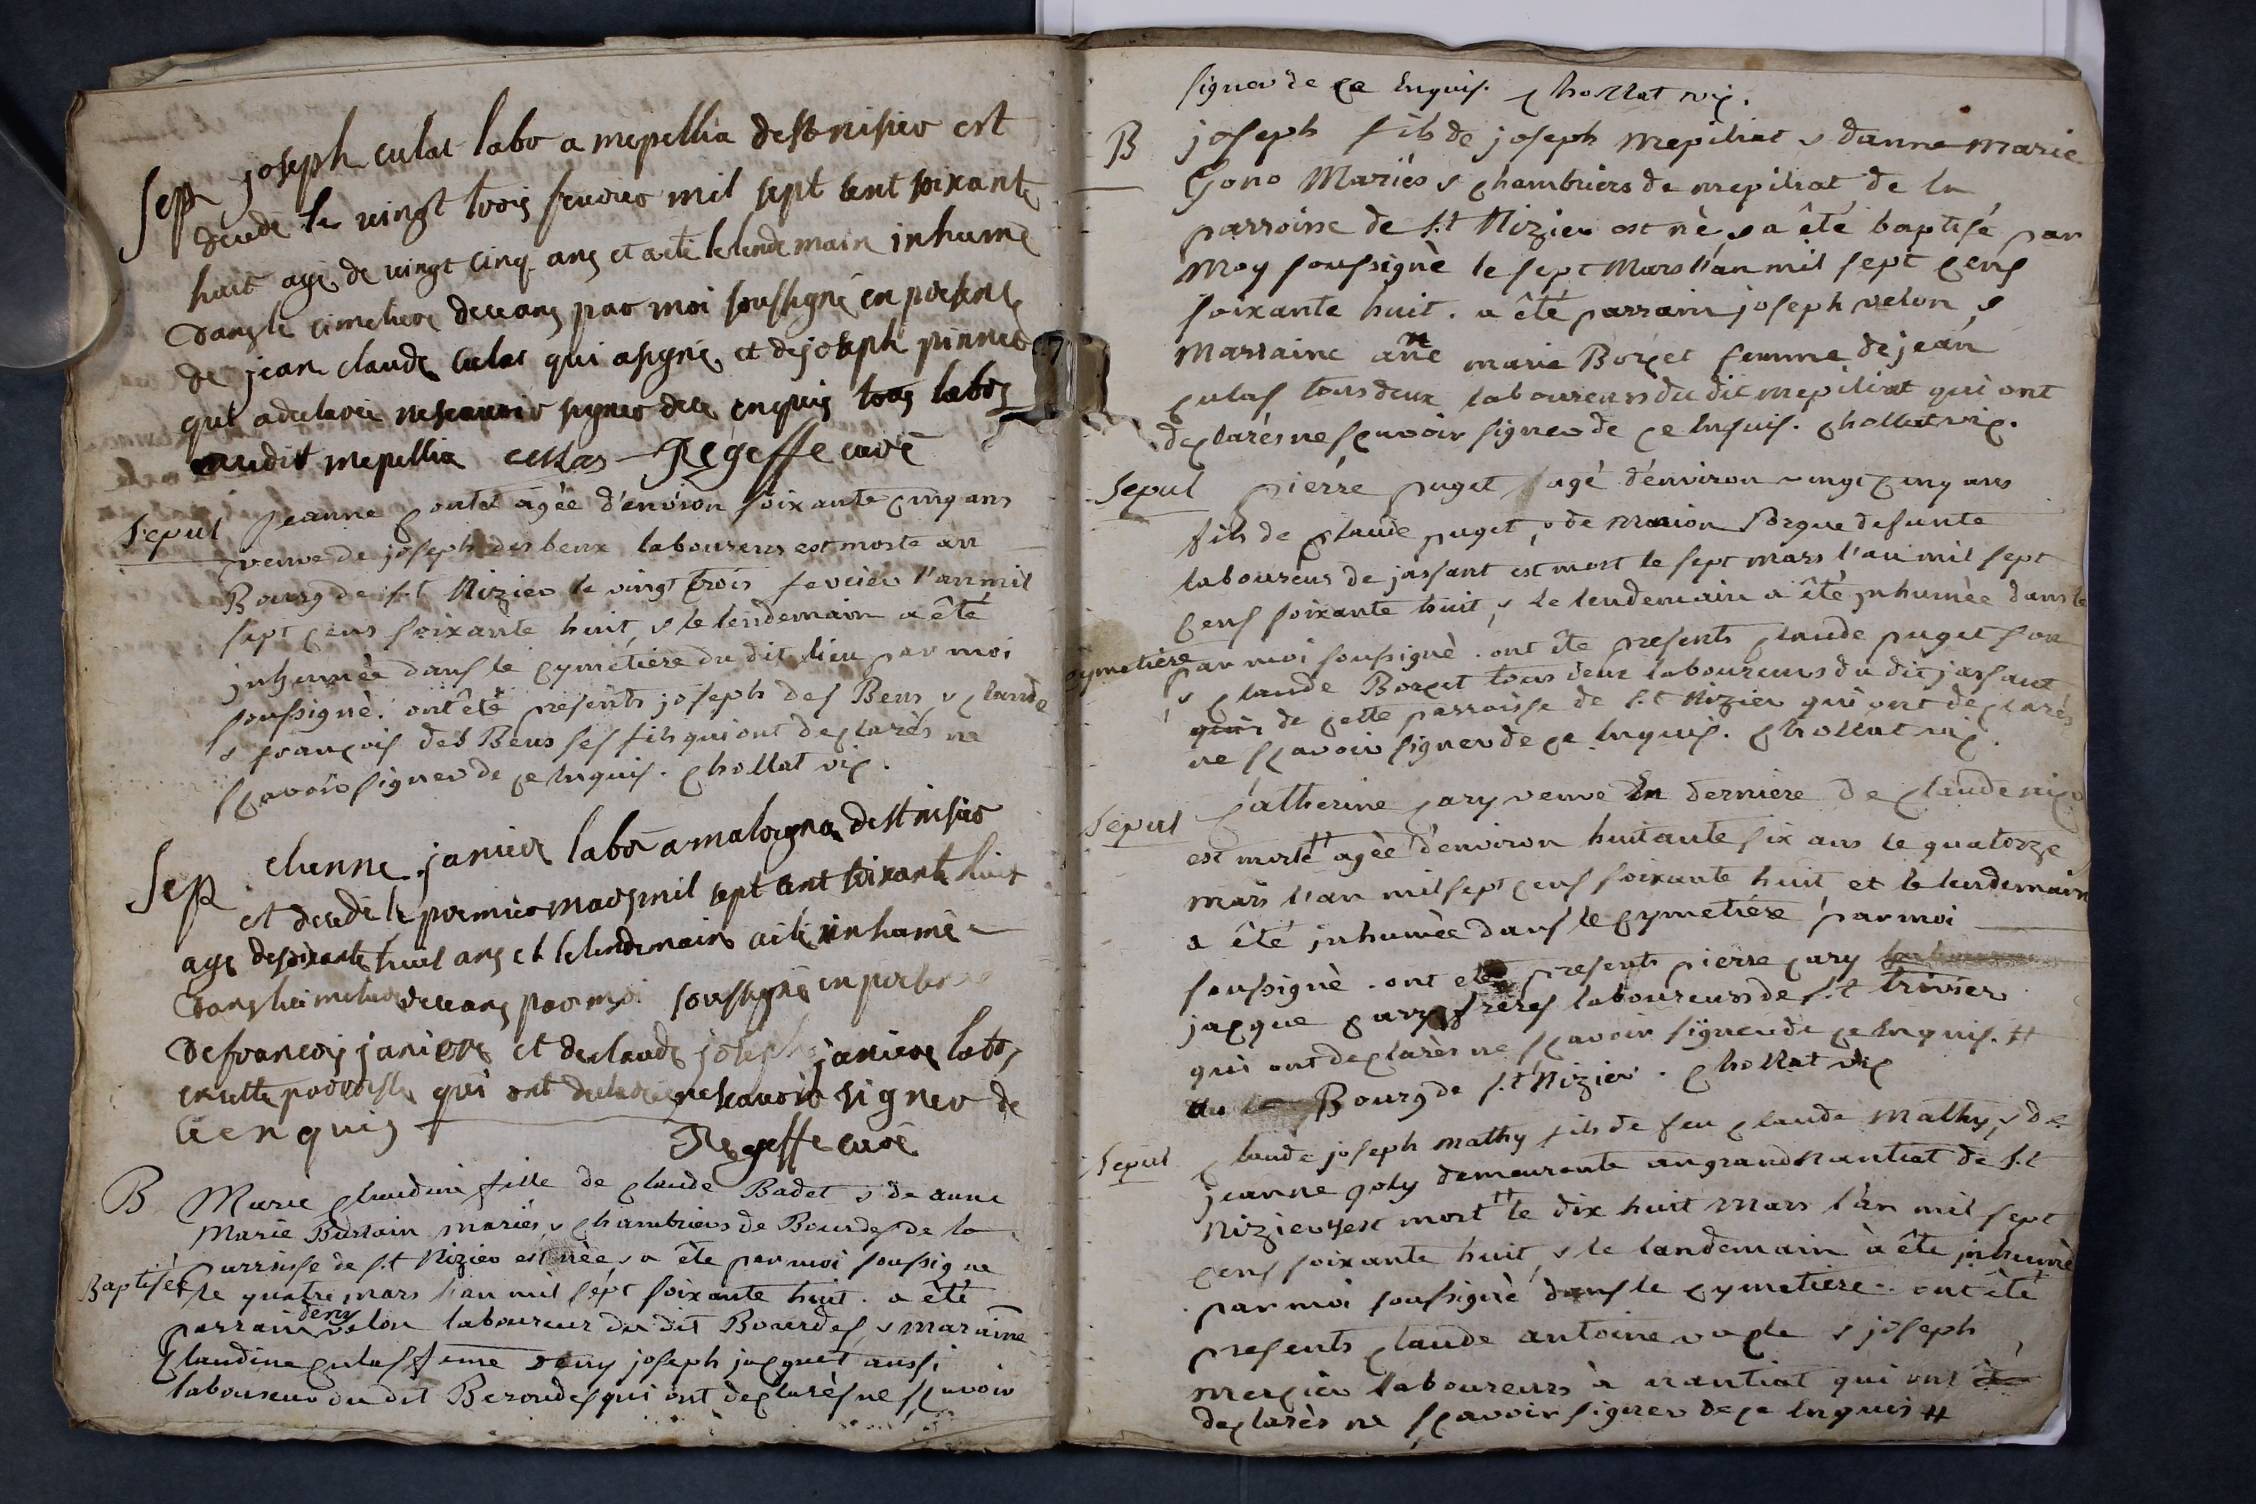 Sepr joseph culas labo a mepillia de st nisier est
decede le vingt trois fevrier mil sept cent soixante
huit agé de vingt cinq ans et a eté le lendemain inhumé
dans le cimetiere de ceans par moi soussigné en presence
de jean claude culas qui a signé et de joseph pinnet
qui a declaré ne scauoir signer de ce enquis tous labos
audit mepillia culas Regeffe curé
Sepul jeanne contet agée d'environ soixante cinq ans
veuve de joseph des beux laboureurs est morte au
Bourg de st Nizier le vingt trois fevrier l'an mil
sept cens soixante huit, & le lendemain a êté
jnhumée dans le cymetiere du dit lieu par moi
soussigné. ont êté presents joseph des Beus, & claude
& françois des Beus ses fils qui ont declarés ne
scavoir signer de ce Enquis. chollat vic.
Sepr etienne janier labo a malogna de st nisier
est decedé le premier mars mil sept cent soixante huit
agé de soixante huit ans et le lendemain a eté inhumé
dans le cimetiere de ceans par moi soussigné en presence
de francois janiere et de claude joseph janiere labos
en cette parroisse qui ont declaré ne scauoir signer de
ce enquis Regeffe curé
B Marie claudine fille de claude Badet & de anne
Marie Bustain mariés & chambriers de Bourdes de la
parroisse de st Nizier est née & a êté par moi soussigne
Baptisée le quatre mars l'an mil sept soixante huit. a êté
parrain deny velon laboureur du dit Bourdes, & maraine
claudine culas feme deny joseph jacquet aussi
laboureur du dit Berondes qui ont declarés ne scavoir
signer de ce Enquis. chollat vic.
B joseph fils de joseph mepiliat & d'anne marie
Gono Mariés & chambriers de mepiliat de la
parroisse de st Nizier est né, & a êté baptisé par
Moy soussigné le sept Mars l'an mil sept cens
soixante huit. a êté parrain joseph velon &
Marraine anne marie Borcet femme de jean
culas tous deux laboureurs du dit mepiliat qui ont
declarés ne scavoir signer de ce Enquis. chollat vic.
Sepul pierre puget agé d'environ vingt cinq ans
fils de claude puget, & de marion Sorgue defunte
laboureur de jassant est mort le sept mars l'an mil sept
cens soixante huit, & le lendemain a êté jnhumée dans le
cymetiere par moi soussigné. ont êté presents claude puget son
& claude Borcet tous deux laboureurs du dit jassant
de cette parroisse de st Nizier qui ont declarés
ne scavoir signer de ce Enquis. chollat vic.
Sepul catherine cary veuve En derniere de claude
est morte agée d'environ huitante six ans le quatorze
mars l'an mil sept cens soixante huit et le lendemain
a êté jnhumée dans le cymetiere par moi
soussigné. ont eté presents pierre cary
jacque cary freres laboureurs de st trivier
qui ont declarés ne scavoir signer de ce Enquis. #
du Bourg de st Nizier. chollat vic
Sepul claude joseph mathy fils de feu claude mathy, & de
jeanne goly demeurante au grand nantiat de st
Nizier est mort le dix huit mars l'an mil sept
cens soixante huit, & le landemain à êté jnhumé
par moi soussigné dans le cymetiere. ont êté
presents claude antoine & joseph
mercier laboureurs à nantiat qui ont
declarés ne scavoir signer de ce Enquis #